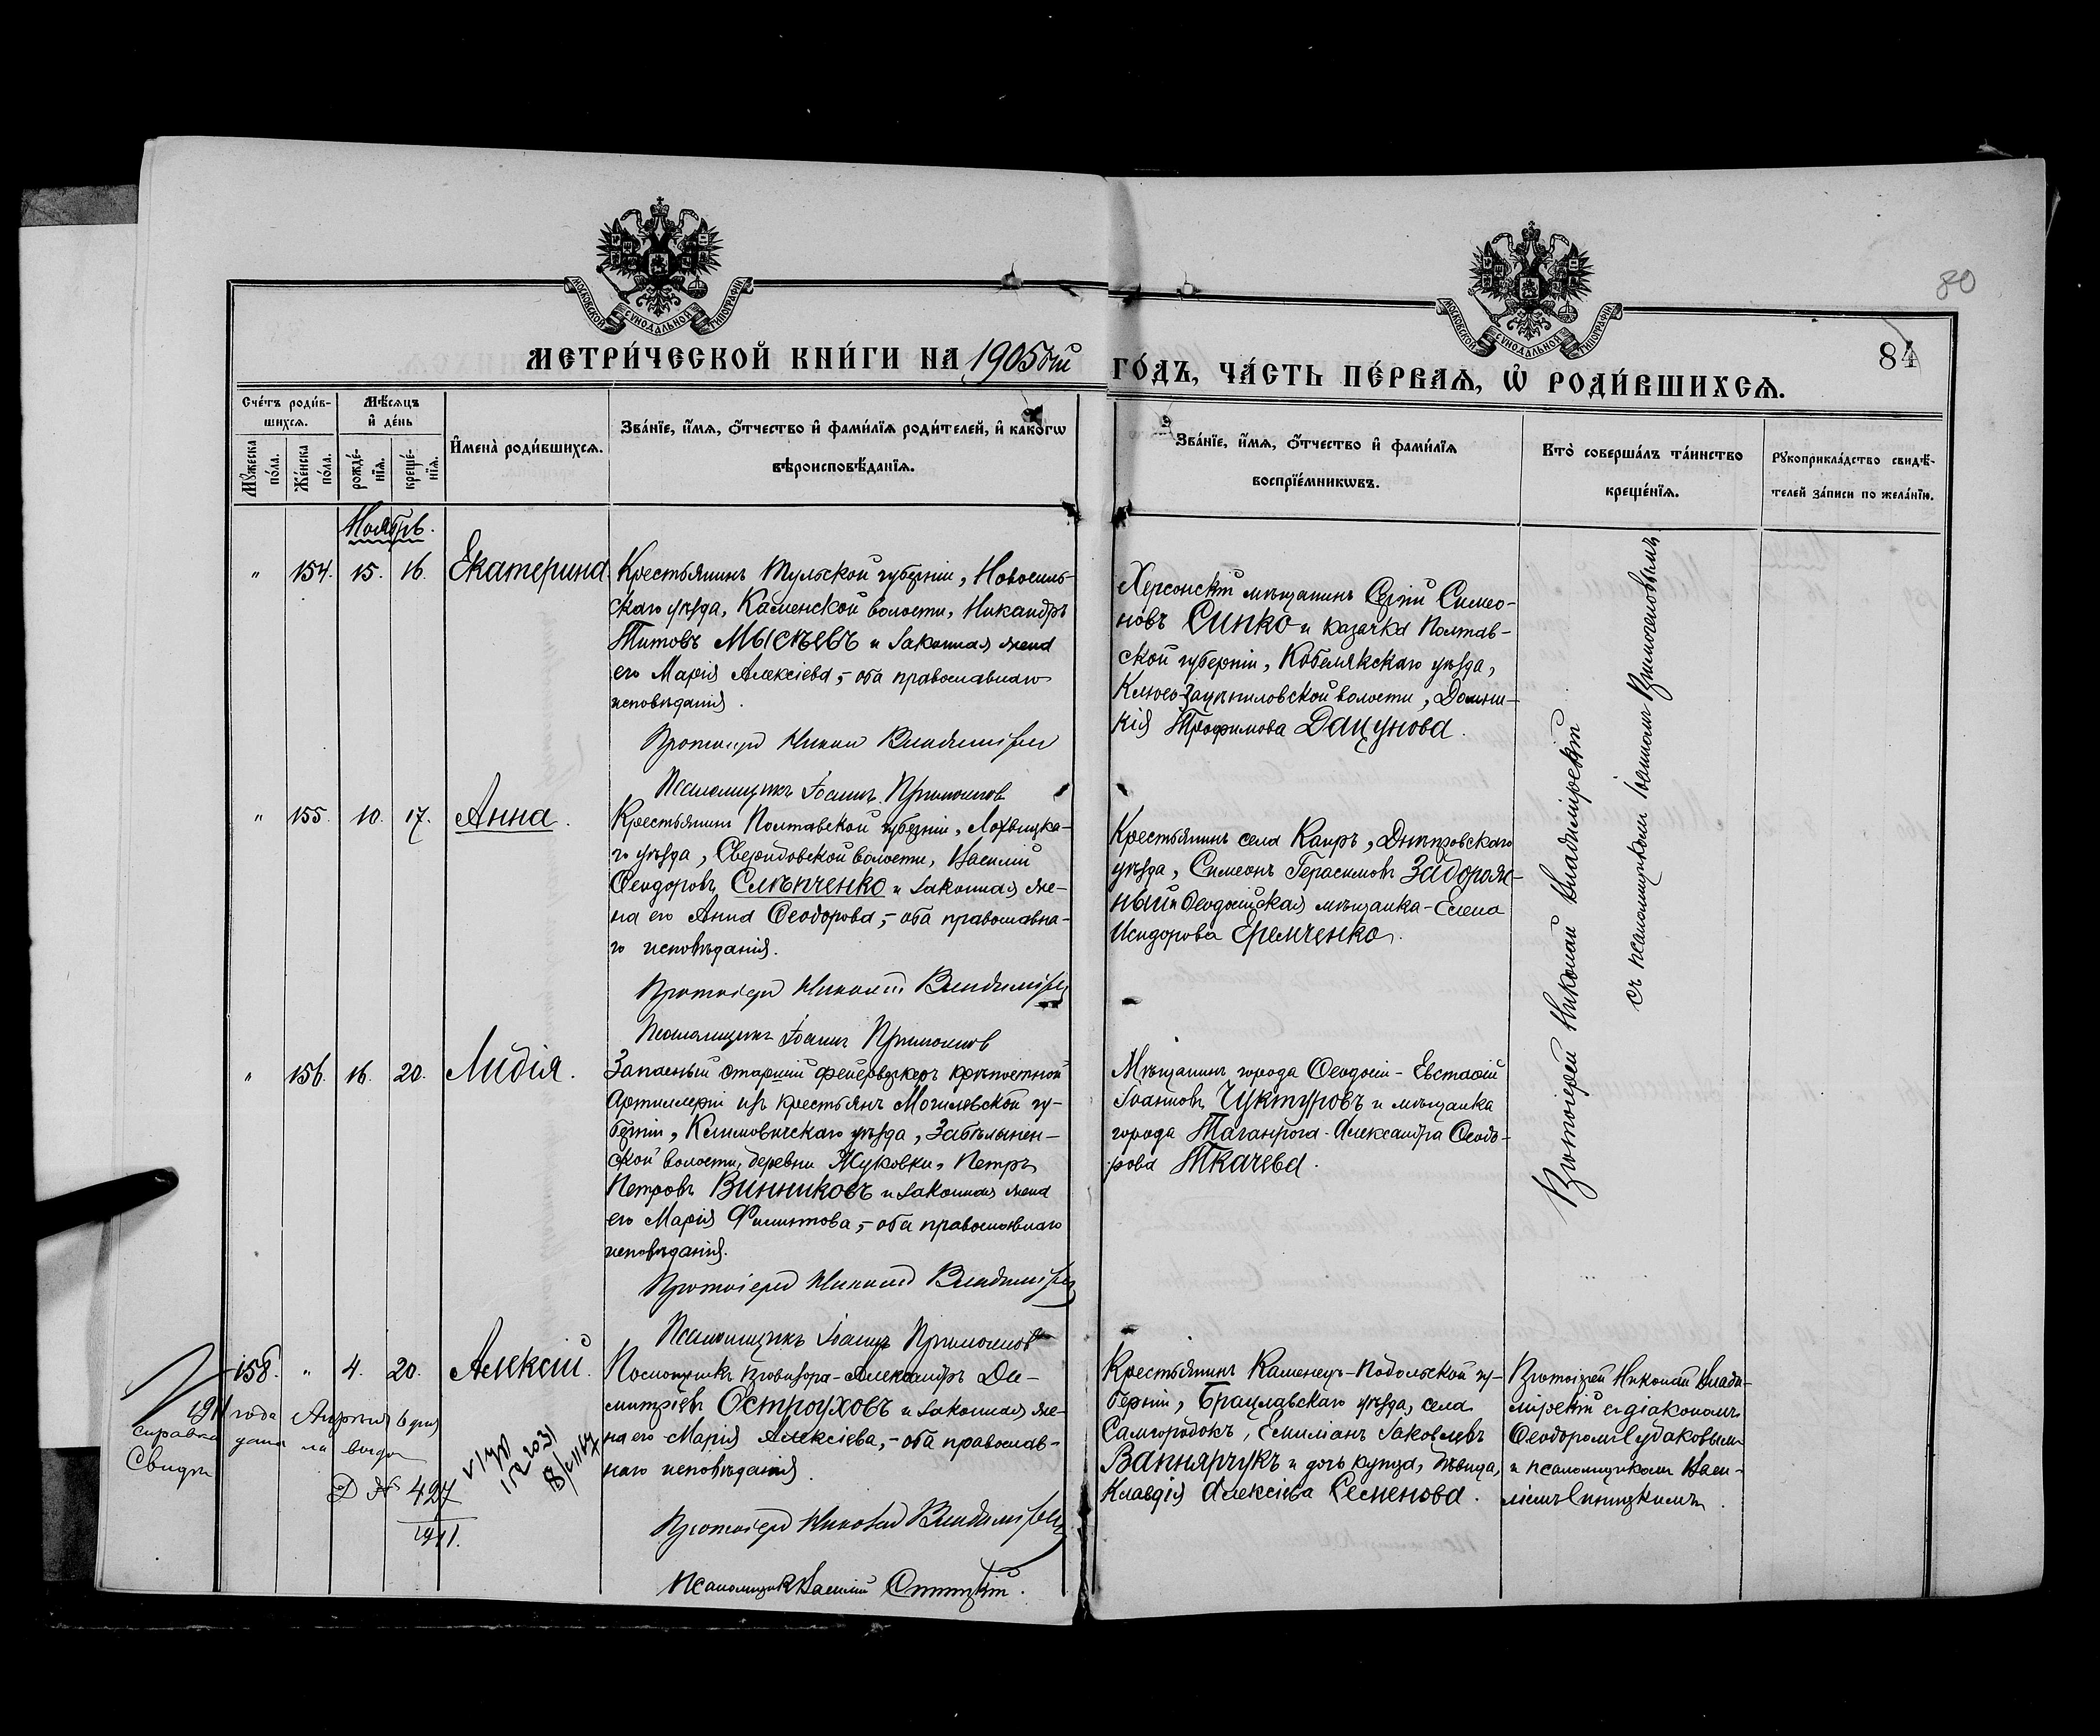 80
МОСКОВСКОЙ СУНОДАЛЬНОЙ ТИПОГРАФІИ
МОСКОВСКОЙ СУНОДАЛЬНОЙ ТИПОГРАФІИ
МЕТРИ́ЧЕСКОЙ КНИ́ГИ НА 1905ый ГО́ДЪ, ЧА́СТЬ ПЕ́РВАѦ, Ѡ҆ РОДИ́ВШИХСѦ.
84
Сче́тъ роди́в-
шихсѧ.
Мѣ́сѧцъ
и҆ де́нь
Мꙋ́жеска
по́ла.
Же́нска
по́ла.
рожде́-
нїѧ.
креще́-
нїѧ.
И҆мена̀ роди́вшихсѧ.
Зва́нїе, и҆́мѧ, ѻ҆́тчество и҆ фами́лїѧ роди́телей, и҆ како́гѡ
вѣроисповѣ́данїѧ.
Зва́нїе, и҆́мѧ, ѻ҆́тчество и҆ фами́лїѧ
воспрїе́мникѡвъ.
Кто̀ соверша́лъ та́инство
креще́нїѧ.
Рꙋкоприкла́дство свидѣ́-
телей за́писи по жела́нїю.
Ноябрь.
" 154. 15. 16. Екатерина
Крестьянинъ Тульской губерніи, Новосиль-
скаго уѣзда, Каменской волости, Никандръ
Титовъ Мысѣевъ и законная жена
его Марія Алексіева, - оба православнаго
исповѣданія.
Протоіерей Николай Владимірскій
Псаломщикъ Іоаннъ
Херсонскій мѣщанинъ Сергій Симео-
новъ Синко и казачка Полтав-
ской губерніи, Кобелякскаго уѣзда,
волости,
кія Трофимова Дацунова.
" 155. 10. 17. Анна.
Крестьянинъ Полтавской губерніи, Лохвицка-
го уѣзда, Свиридовской волости, Василій
Ѳеодоровъ Слѣпченко и законная же-
на его Анна Ѳеодорова, - оба православна-
го исповѣданія.
Протоіерей Николай Владимірскій
Псаломщикъ Іоаннъ
Крестьянинъ села Каиръ, Днѣпровскаго
уѣзда, Симеонъ Герасимовъ Задорож-
ный и Ѳеодосійская мѣщанка - Елена
Исидорова Еремченко.
" 156. 16. 20. Лидія.
Запасный старшій фейерверкеръ крѣпостной
Артиллеріи изъ крестьянъ Могилевской гу-
берніи, Климовичскаго уѣзда, Забѣлынен-
ской волости, деревни Жуковки, Петръ
Петровъ Винниковъ и законная жена
его Марія Филиппова, - оба православнаго
исповѣданія.
Протоіерей Николай Владимірскій
Псаломщикъ Іоаннъ
Мѣщанинъ города Ѳеодосіи - Евстафій
Іоанновъ Чуктуровъ и мѣщанка
города Таганрога - Александра Ѳеодо-
рова Ткачева.
Протоіерей Николай Владимірскій
съ псаломщикомъ Іоанномъ
158. " 4. 20. Алексій.
Помощникъ провизора - Александръ Ди-
митріевъ Остроуховъ и законная же-
на его Марія Алексіева, - оба православ-
наго исповѣданія.
Протоіерей Николай Владимірскій
Псаломщикъ Василій Синицкій.
Крестьянинъ Каменецъ-Подольской гу-
берніи, Брацлавскаго уѣзда, села
Самгородокъ, Емиліанъ Іаковлевъ
Вапнярчукъ и дочь купца, дѣвица,
Клавдія Алексіева Семенова.
Протоіерей Николай Влади-
мірскій съ діакономъ
Ѳеодоромъ Судаковымъ
и псаломщикомъ Васи-
ліемъ Синицкимъ.
1911 года Апрѣля 6 дня
справка дана на выдачу
Свидѣт
№ 427
1911.